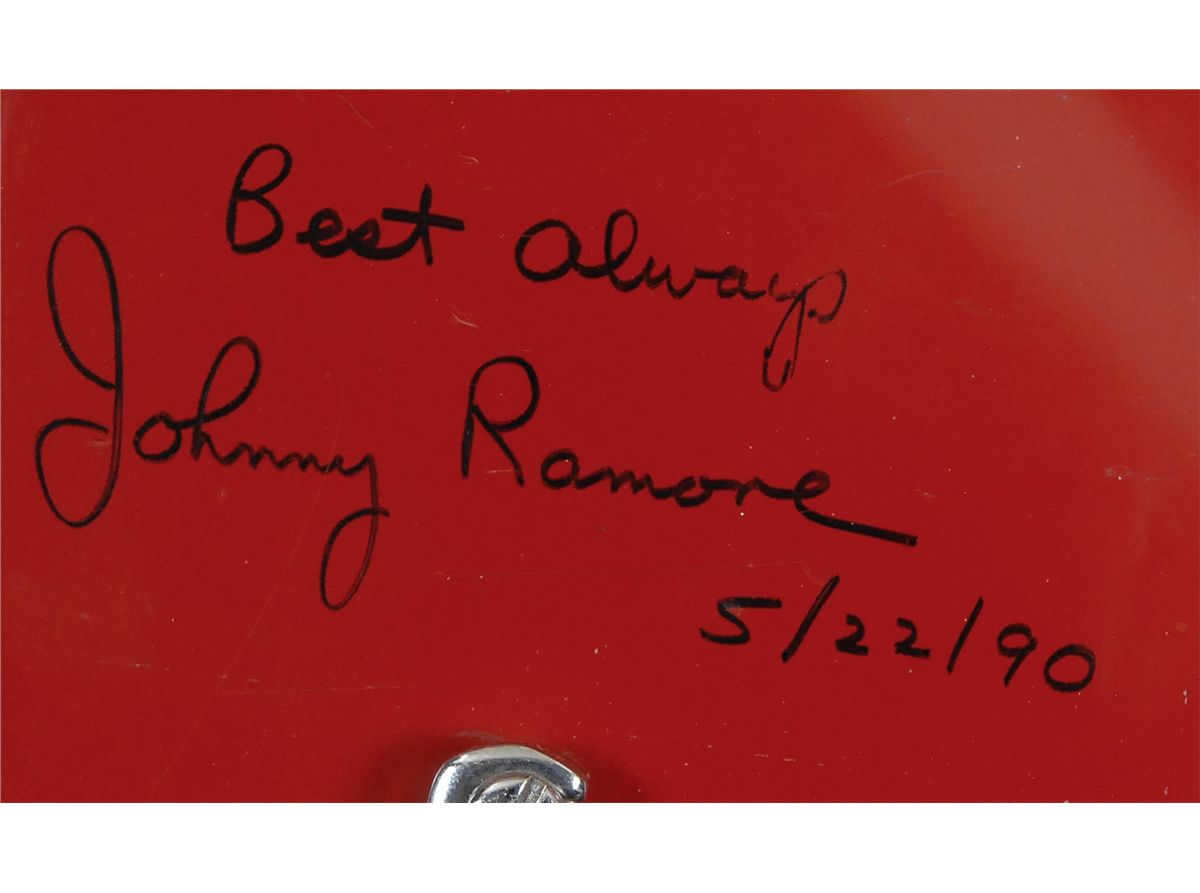 Best always
Johnny Ramone
5/22/90